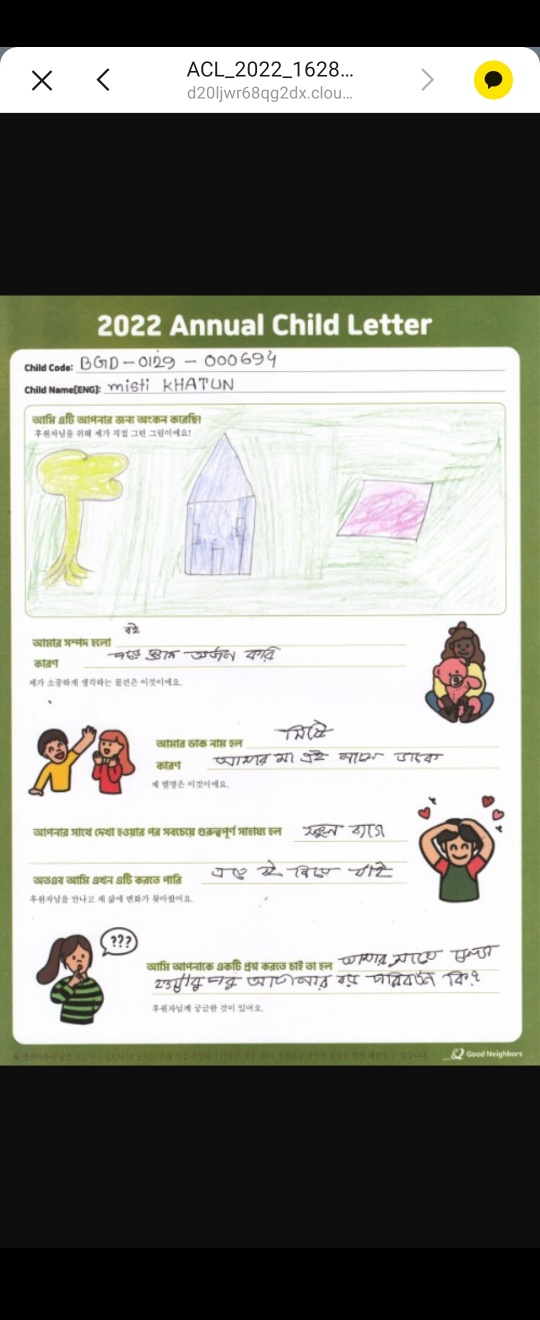 ACL_2022_1628...
d20ljwr68qg2dx.clou...
2022 Annual Child Letter
Child Code: BGD-0129-000694
Child Name[ENG]: misti KHATUN
আমি এটি আপনার জন্য অংকন করেছি!
후원자님을 위해 제가 직접 그린 그림이에요!
বই
আমার সম্পদ হলো
কারণ জ্ঞান অর্জন করি
제가 소중하게 생각하는 물건은 이것이에요.
আমার ডাক নাম হল
কারণ আমার মা এই নামে ডাকে
제 별명은 이것이에요.
আপনার সাথে দেখা হওয়ার পর সবচেয়ে গুরুত্বপূর্ণ সাহায্য হল স্কুল ব্যাগ
অতএব আমি এখন এটি করতে পারি এতে বই নিয়ে যাই
후원자님을 만나고 제 삶에 변화가 찾아왔어요.
???
আমি আপনাকে একটি প্রশ্ন করতে চাই তা হল আমার সাথে
পর আপনার বড় পরিবর্তন কি?
후원자님께 궁금한 것이 있어요.
Good Neighbors